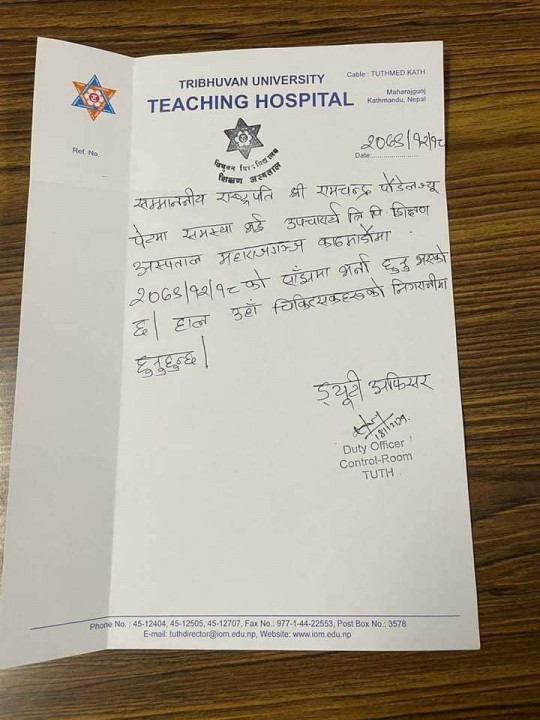 TRIBHUVAN UNIVERSITY
TEACHING HOSPITAL
Cable : TUTHMED KATH
Maharajgunj
Kathmandu, Nepal
Ref. No.
त्रिभुवन विश्वविद्यालय
शिक्षण अस्पताल
Date:
सम्माननीय राष्ट्रपति श्री रामचन्द्र पौडेलज्यू
पेटमा समस्या भई उपचारार्थ त्रि.वि. शिक्षण
अस्पताल महाराजगञ्ज काठमाडौंमा
को साँझमा भर्ना हुनु भएको
छ। हाल उहाँ चिकित्सकहरुको निगरानीमा
हुनुहुन्छ।
ड्यूटी अफिसर
Duty Officer
Control-Room
TUTH
Phone No. : 45-12404, 45-12505, 45-12707, Fax No.: 977-1-44-22553, Post Box No.: 3578
E-mail: tuthdirector@iom.edu.np, Website: www.iom.edu.np